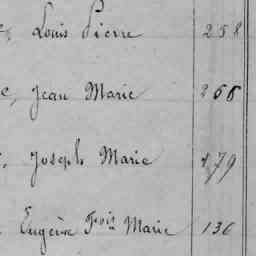 Louis Pierre 258
e, Jean Marie 266
, Joseph Marie 179
Eugène Fois Marie 136